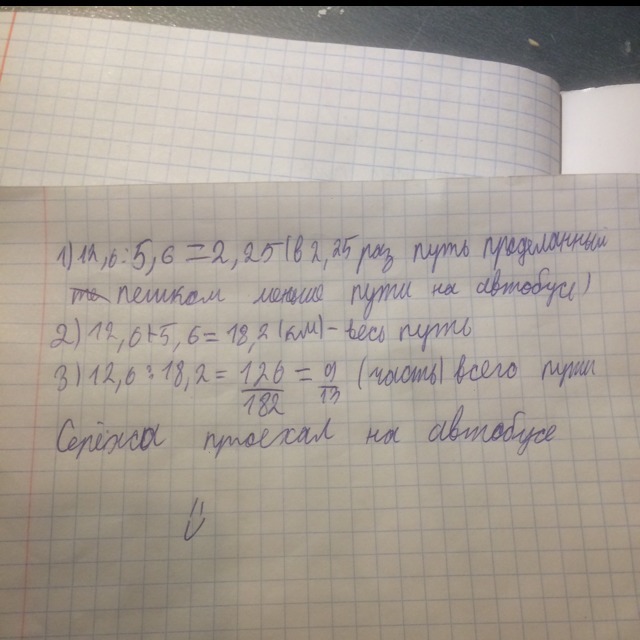 1) 12,6:5,6=2,25 (в 2,25 раз путь проделанный
пешком меньше пути на автобусе)
2) 12,6+5,6=18,2 (км) - весь путь
3) 12,6:18,2= 126/182 = 9/13 (часть) всего пути
Серёжа проехал на автобусе